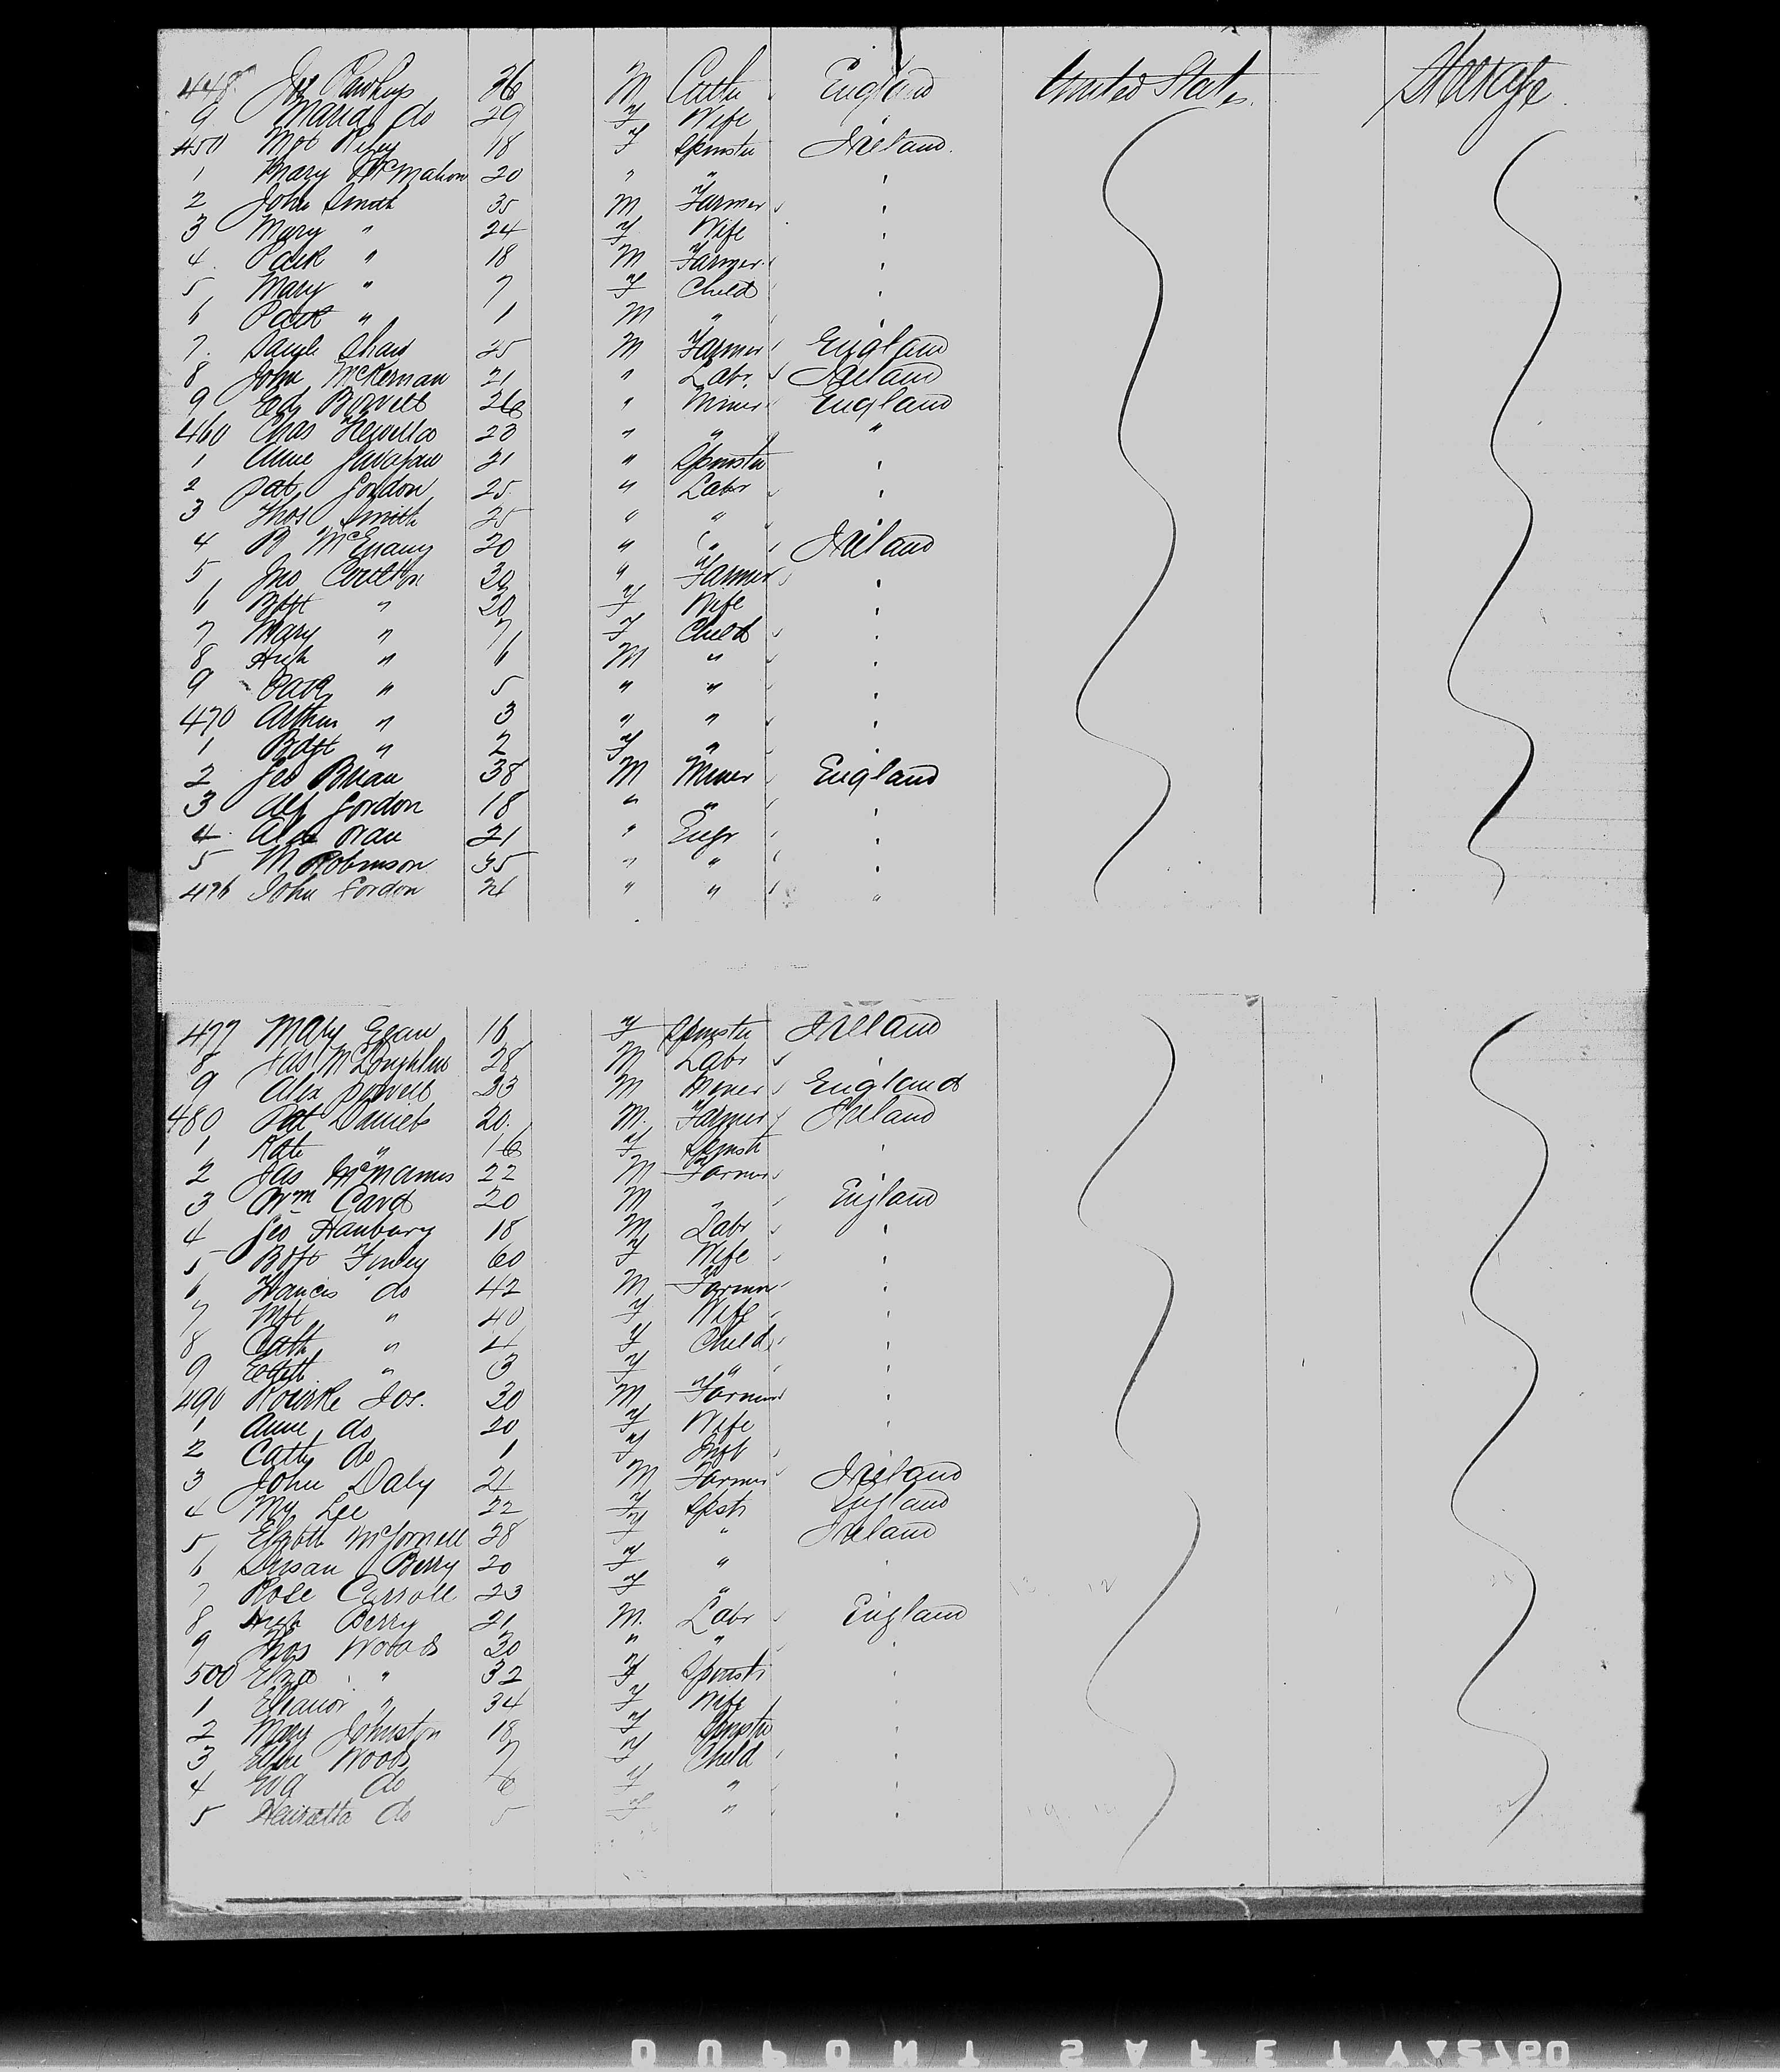 448 Jos 36 M England United States Steerage
9 Maria do 29 F Wife "
450 Mgt Riley 18 F Spinster Ireland
1 Mary McMahon 20 " " "
2 John Smith 35 M Farmer "
3 Mary " 24 F Wife "
4 Patk " 18 M Farmer "
5 Mary " 7 F Child "
6 Patk " 1 M " "
7 Saml Shaw 25 M Farmer England
8 John McKernan 21 " Labr Ireland
9 Ed 26 " Miner England
460 Chas 23 " " "
1 Anne 21 " Spinster "
2 Pat Gordon 25 " Labr "
3 Thos Smith 25 " " "
4 20 " " Ireland
5 Jno Coulton 30 " Farmer "
6 Bgt " 20 F Wife "
7 Mary " 7 F Child "
8 Hugh " 6 M " "
9 Patk " 5 " " "
470 Arthur " 3 " " "
1 Bdgt " 2 F " "
2 Geo Brian 38 M Miner England
3 Alf Gordon 18 " " "
4 21 " Engr "
5 M Robinson 35 " " "
476 John Gordon 21 " " "
477 Mary Egan 16 F Spinster Ireland
8 Jas McLoughlin 28 M Labr "
9 Alex Powell 23 M Miner England
480 Pat Daniels 20 M. Farmer Ireland
1 Kate " 16 F Spinstr "
2 Jas McManus 22 M Farmer "
3 Wm 20 M " England
4 Geo Hanbury 18 M Labr "
5 Bgt Finley 60 F Wife "
6 Francis do 42 M Farmer "
7 Mgt " 40 F Wife "
8 Cath " 4 F Child "
9 " 3 F " "
490 Rourke Jos. 30 M Farmer "
1 Anne do 20 F Wife "
2 Cath do 1 F Inft "
3 John Daly 21 M Farmer Ireland
4 My Lee 22 F Spstr England
5 Elzbth 28 F " Ireland
6 Susan Berry 20 F " "
7 Rose Carroll 23 F "
8 Hugh Berry 21 M. Labr England
9 Thos Woods 30 " " "
500 Eliza " 32 F Spinstr "
1 Eleanor " 34 F Wife "
2 Mary Johnston 18 F Spinster "
3 Woods 7 F Child "
4 Eva do 6 F " "
5 Henrietta do 5 F " "
DUPONT SAFETY